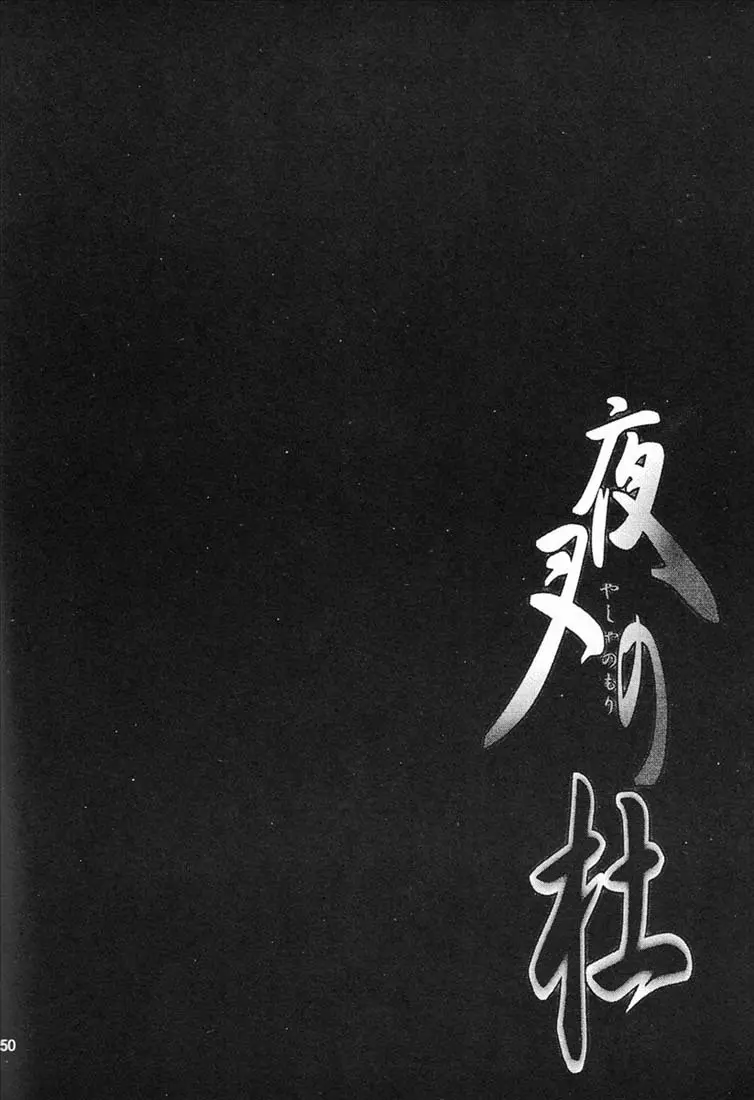 夜叉の杜
やしゃのむり
50